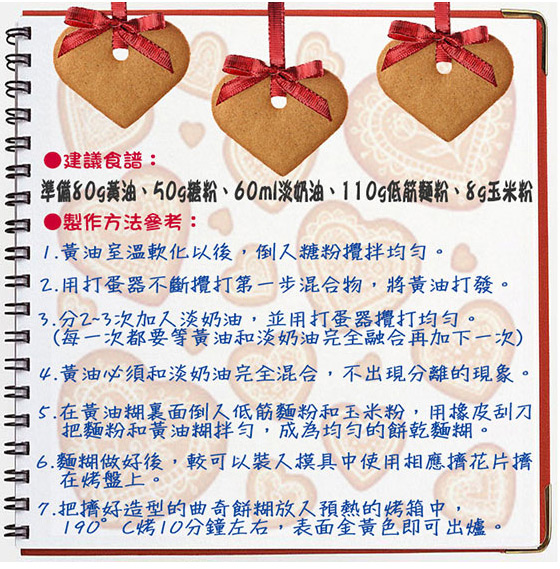 ●建議食譜：
準備80g黃油、50g糖粉、60ml淡奶油、110g低筋麵粉、8g玉米粉
●製作方法參考：
1.黃油室溫軟化以後，倒入糖粉攪拌均勻。
2.用打蛋器不斷攪打第一步混合物，將黃油打發。
3.分2~3次加入淡奶油，並用打蛋器攪打均勻。
(每一次都要等黃油和淡奶油完全融合再加下一次)
4.黃油必須和淡奶油完全混合，不出現分離的現象。
5.在黃油糊裏面倒入低筋麵粉和玉米粉，用橡皮刮刀
把麵粉和黃油糊拌勻，成為均勻的餅乾麵糊。
6.麵糊做好後，較可以裝入模具中使用相應擠花片擠
在烤盤上。
7.把擠好造型的曲奇餅糊放入預熱的烤箱中，
190°C烤10分鐘左右，表面金黃色即可出爐。